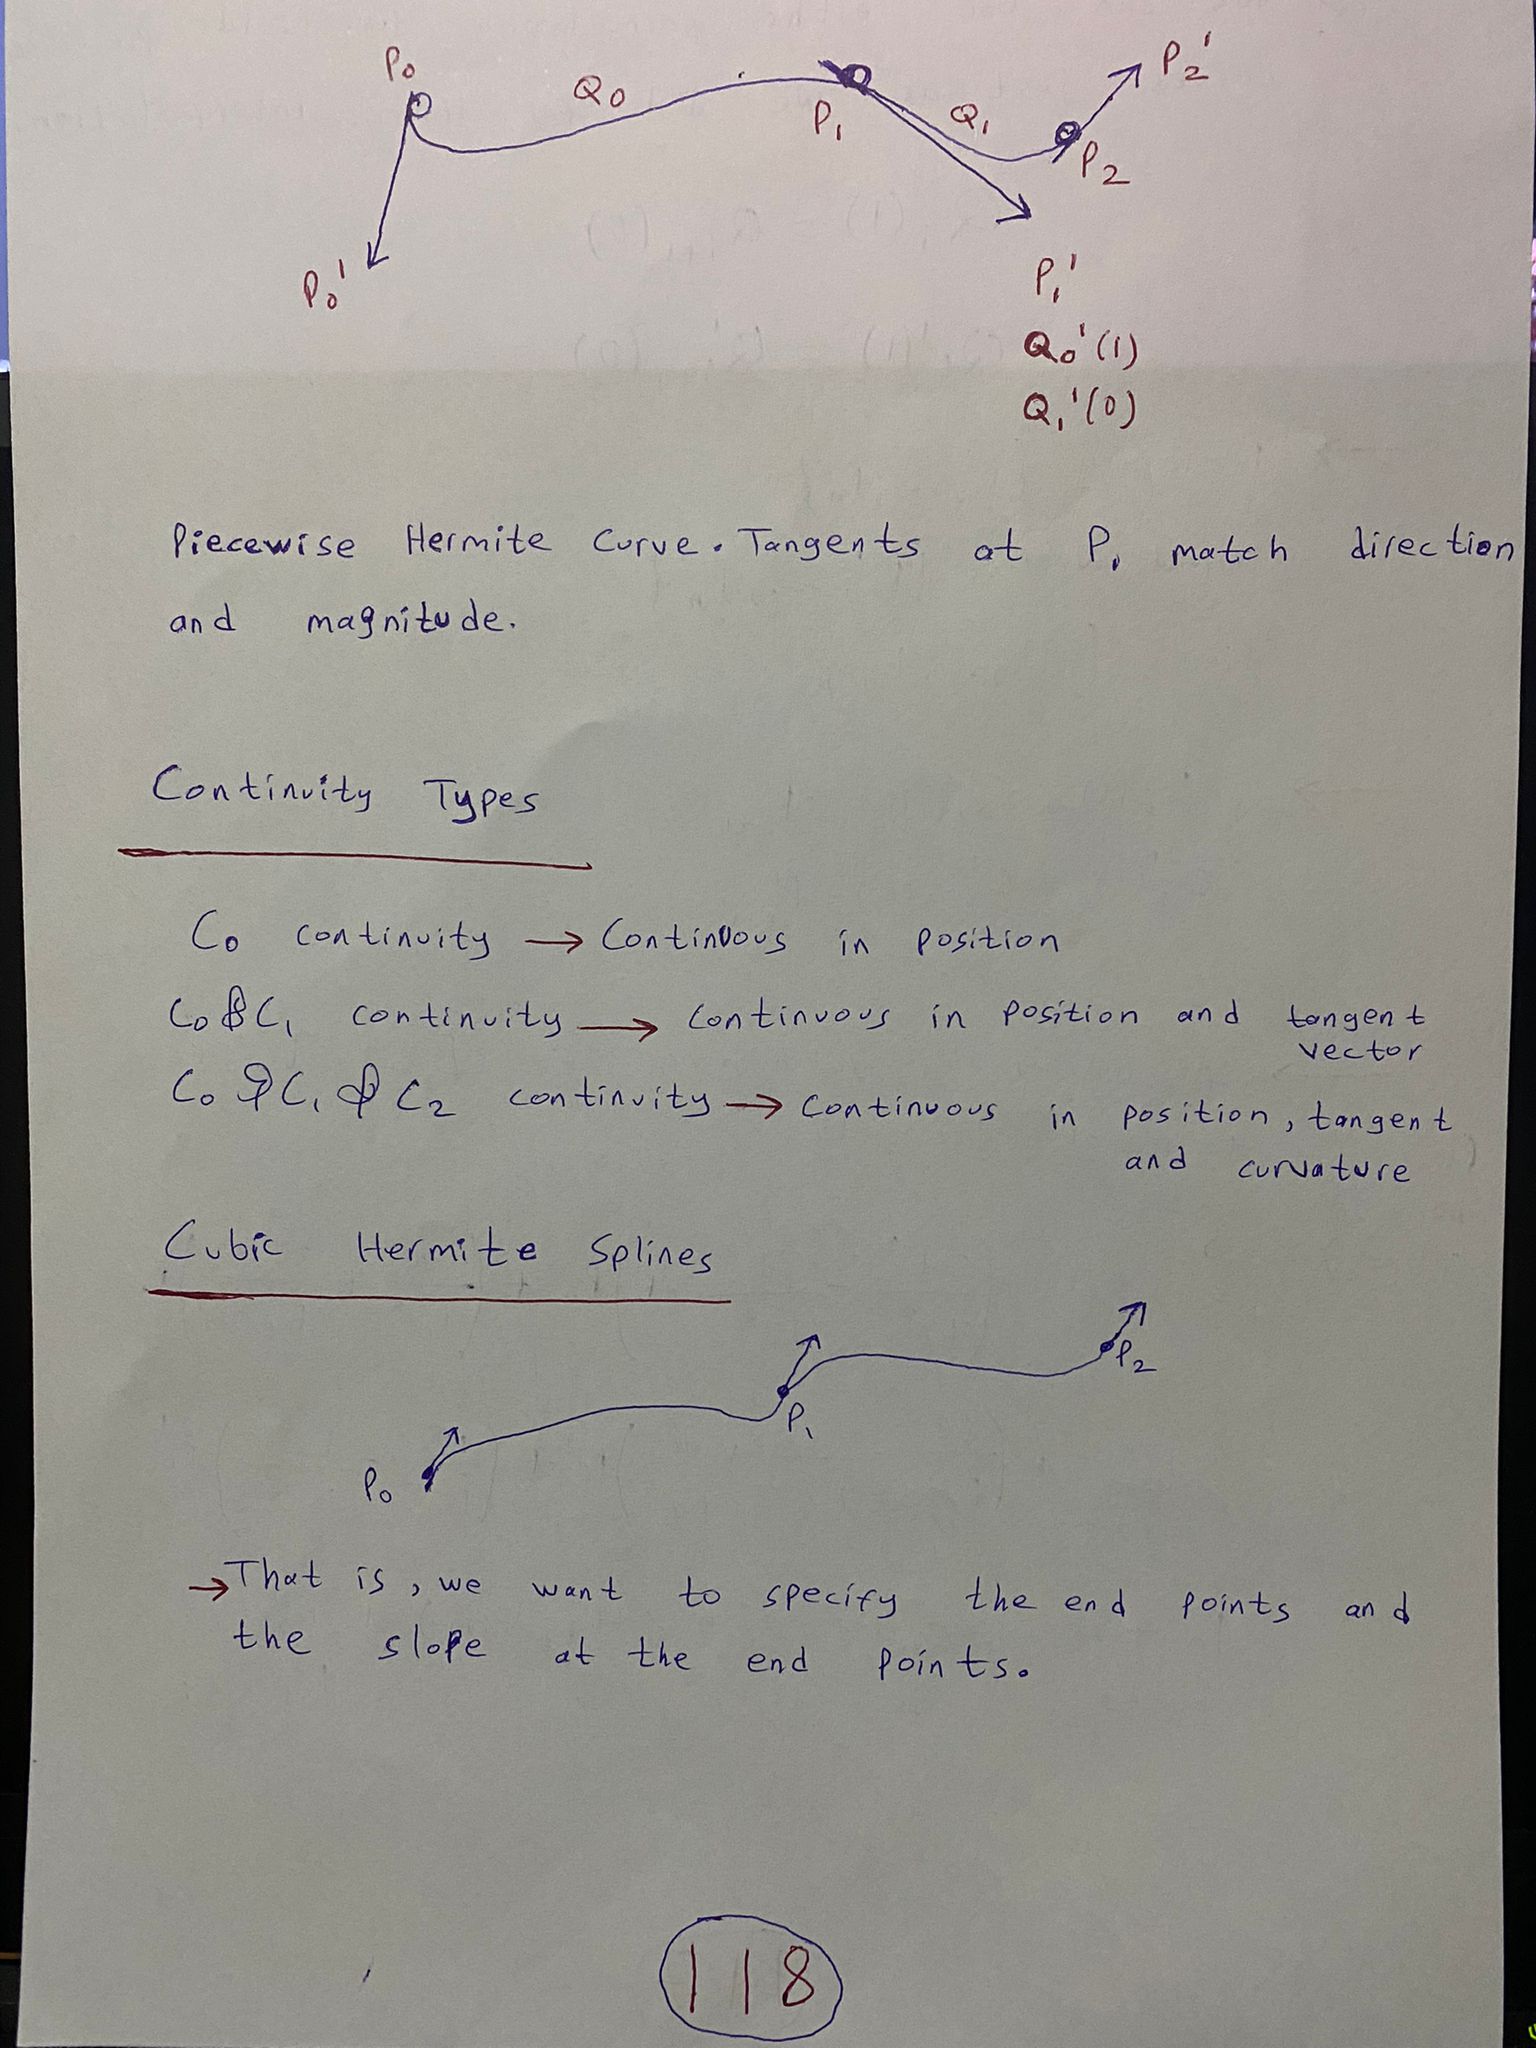 P₀
Q₀
P₁
Q₁
P₂'
P₂
P₀'
P₁'
Q₀'(1)
Q₁'(0)
Piecewise Hermite Curve. Tangents at P₁ match direction
and magnitude.
Continuity Types
C₀ continuity → Continuous in position
C₀ & C₁ continuity → continuous in position and tangent
vector
C₀ & C₁ & C₂ continuity → continuous in position, tangent
and curvature
Cubic Hermite Splines
P₂
P₁
P₀
→ That is, we want to specify the end points and
the slope at the end points.
118